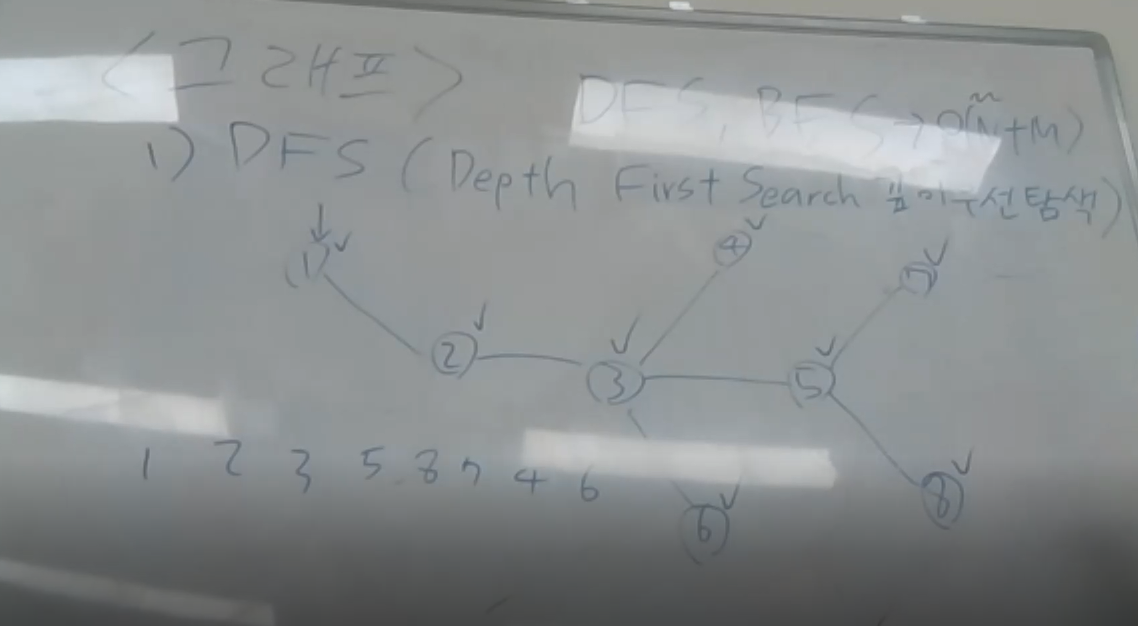 <그래프>
DFS, BFS → O(N+M)
1) DFS (Depth First Search 깊이우선탐색)
1
4
7
2
3
5
1 2 3 5 8 7 4 6
6
8